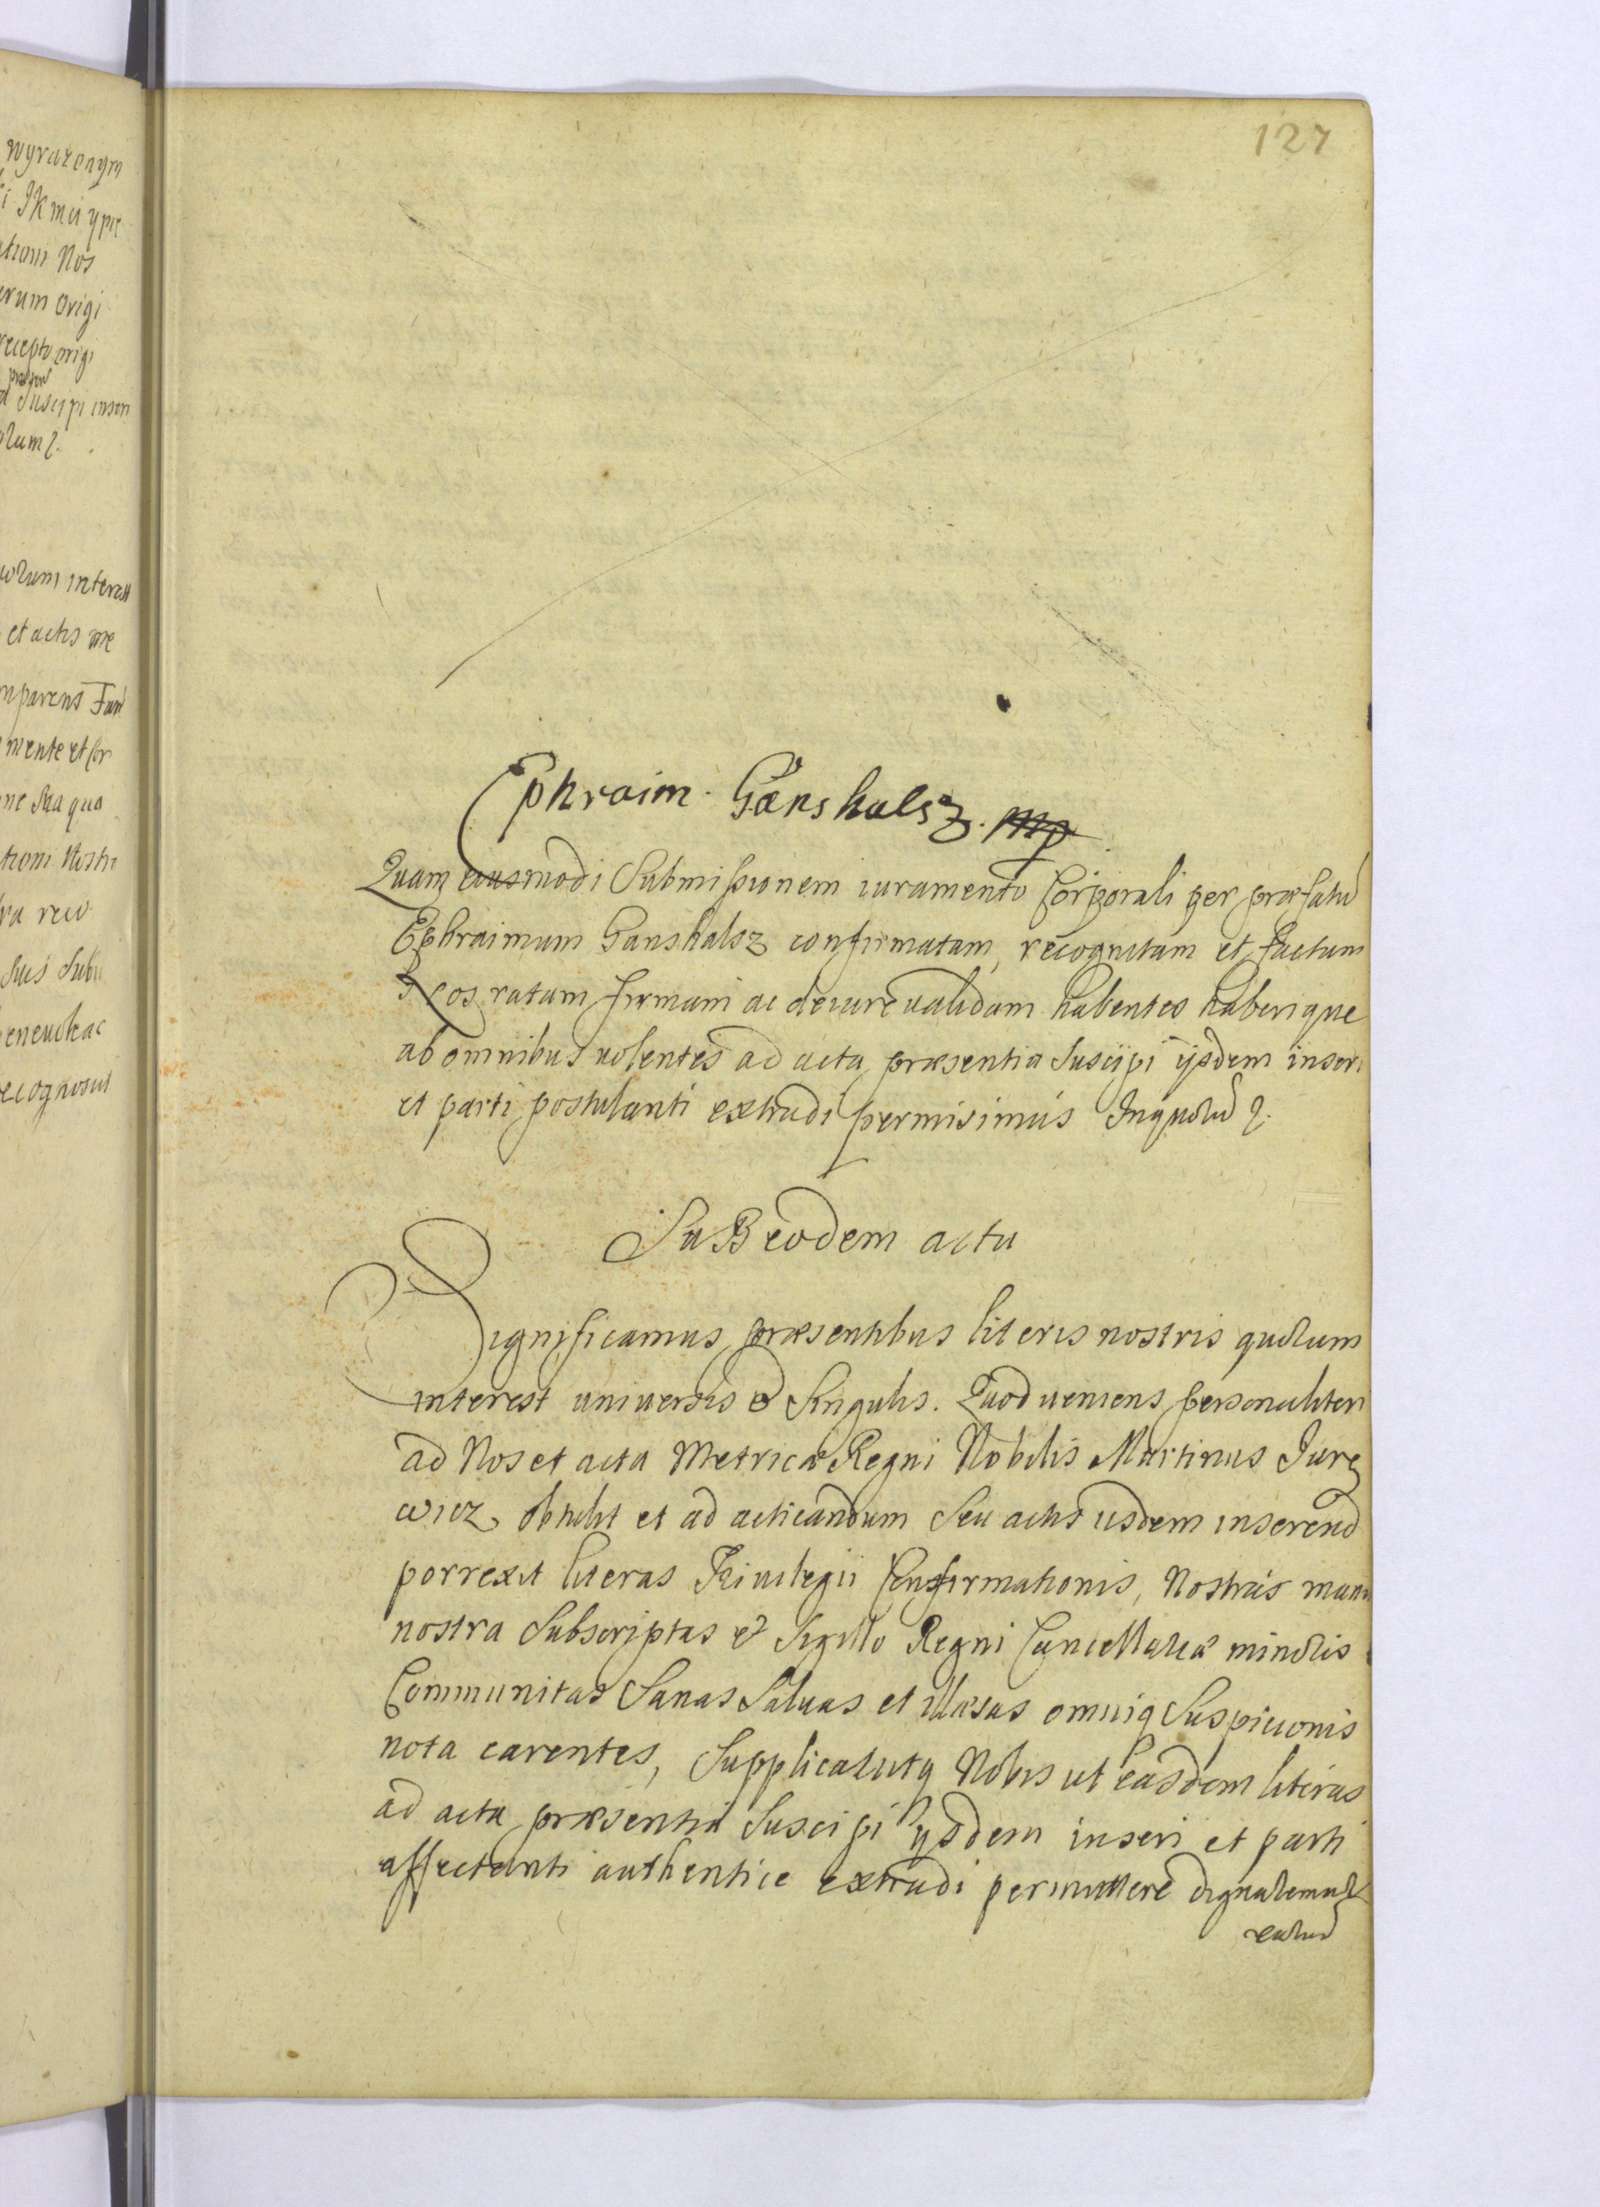 127
wyrazonym
Nos
erum Origi
recepto origi
Suscipi inseri
interest
et actis
mparens
mente et
qua
Ephraim Gänshalsz. mp
Quam eiusmodi Submissionem iuramento Corporali per præfatũ
Ephraimum Ganshalsz confirmatam, recognitam et factam
Nos ratam firmam ac de iure validam habentes haberique
ab omnibus volentes ad acta præsentia Suscipi ijsdem inseri
et parti postulanti extradi permisimus Inquorũ
SuB eodem actu
Significamus præsentibus literis nostris quorum
interest universis & Singulis. Quod veniens personaliter
ad Nos et acta Metricæ Regni Nobilis Martinus Jure
wicz obtulit et ad acticandum Seu actis ijsdem inserend
porrexit literas Privilegii Confirmationis, Nostras manu
nostra Subscriptas & Sigillo Regni Cancellariæ minoris
Communitas Sanas Salvas et illæsas omniq Suspicionis
nota carentes, Supplicavitq Nobis ut easdem literas
ad acta præsentia Suscipi ijsdem inseri et parti
affectanti authentice extradi permittere dignaremur
earum